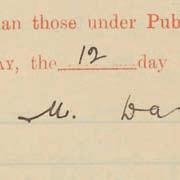 an those under Pub
AY, the 12 day
M. Da